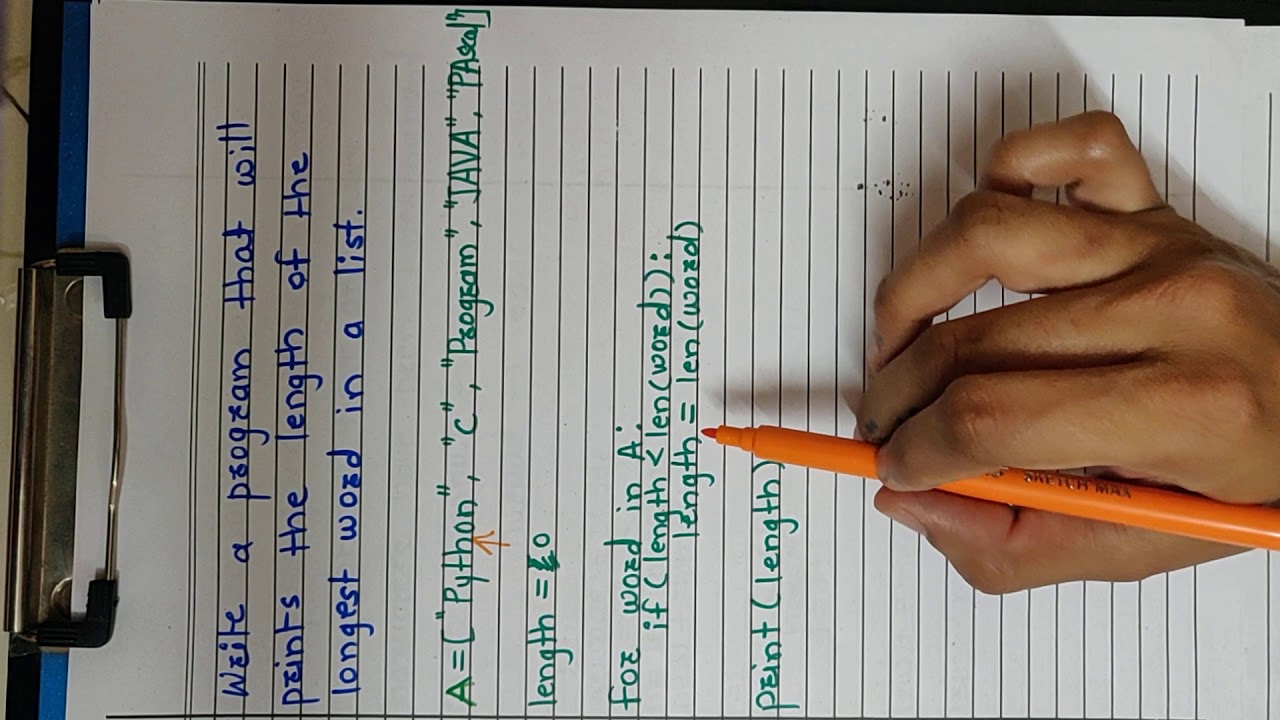 Write a program that will
prints the length of the
longest word in a list.
A = ["Python", "C", "Program", "JAVA", "PAscal"]
length = 0
for word in A:
if (length < len(word)):
length = len(word)
print (length)
SKETCH MAX